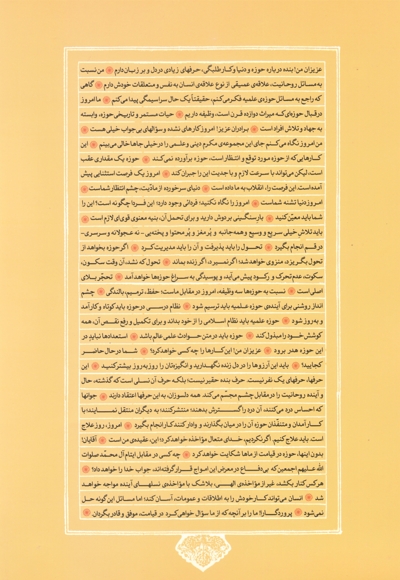 عزیزان من! بنده درباره حوزه و دنیا و کار طلبگی، حرفهای زیادی در دل و بر زبان دارم ❋ من نسبت
به مسائل روحانیت، علاقه‌ی عمیقی از نوع علاقه‌ی انسان به نفس و متعلقات خودش دارم ❋ گاهی
که راجع به مسائل حوزه‌ی علمیه فکر می‌کنم، حقیقتاً یک حال سراسیمگی پیدا می‌کنم ❋ ما امروز
در قبال حوزه‌ای که میراث دوازده قرن است، وظیفه داریم ❋ حیات مستمر و تاریخی حوزه، وابسته
به جهاد و تلاش افراد است ❋ برادران عزیز! امروز کارهای نشده و سؤالهای بی‌جواب خیلی هست ❋
من امروز نگاه می‌کنم جای این مجموعه‌ی مکرم دینی و علمی را در خیلی جاها خالی می‌بینم ❋ این
کارهایی که از حوزه مورد توقع و انتظار است، حوزه برآورده نمی‌کند ❋ حوزه یک مقداری عقب
است، لیکن می‌تواند با سرعت لازم و با جدیت این را جبران کند ❋ امروز یک فرصت استثنایی پیش
آمده است. این فرصت را، انقلاب به ما داده است ❋ دنیای سرخورده از مادیّت، چشم انتظار شماست ❋
امروز دنیا تشنه شماست ❋ امروز را نگاه نکنید؛ فردائی وجود دارد؛ این فردا چگونه است؟ این را
شما باید معیّن کنید ❋ بار سنگینی بر دوش دارید و برای تحمل آن، بنیه معنوی قوی‌ای لازم است ❋
باید تلاش خیلی سریع و وسیع و همه‌جانبه و پُرمغز و پُر محتوا و پخته‌یی - نه عجولانه و سرسری-
در قم انجام بگیرد ❋ تحول را باید پذیرفت و آن را باید مدیریت کرد ❋ اگر حوزه بخواهد از
تحول بگریزد، منزوی خواهد شد؛ اگر نمیرد، اگر زنده بماند ❋ تحول که نشد، آن وقت سکون،
سکوت، عدم تحرک و رکود پیش می‌آید، و پوسیدگی به سراغ حوزه‌ها خواهد آمد ❋ تحجّر بلای
اصلی است ❋ نسبت به حوزه‌ها سه وظیفه، امروز در مقابل ماست: حفظ، ترمیم، بالندگی ❋ چشم
انداز روشنی برای آینده‌ی حوزه علمیه باید ترسیم شود ❋ نظام درسی در حوزه باید کوتاه و کارآمد
و به‌روز شود ❋ حوزه علمیه باید نظام اسلامی را از خود بداند و برای تکمیل و رفع نقص آن، همه
کوشش خود را مبذول کند ❋ حوزه باید در متن حوادث علمی عالم باشد ❋ استعدادها نباید در
این حوزه هدر برود ❋ عزیزان من! این کارها را چه کسی خواهد کرد؟ ❋ شما در حال حاضر
کجایید؟ ❋ باید این آرزوها را در دل زنده نگهدارید و انگیزه‌تان را روز به روز بیشتر کنید ❋ این
حرفها، حرفهای یک نفر نیست. حرف بنده حقیر نیست؛ بلکه حرف آن نسلی است که گذشته، حال
و آینده روحانیت را در مقابل چشم مجسّم می‌کند. همه دلسوزان، به این حرفها اعتقاد دارند ❋ جوانها
که احساس درد می‌کنند، آن درد را گسترش بدهند؛ منتشر کنند؛ به دیگران منتقل نمایند؛ با
کارآمدان و متنفّذان حوزه آن را در میان بگذارند و وادار کنند کار انجام بگیرد ❋ امروز، روز علاج
است. باید علاج کنیم. اگر نکردیم، خدای متعال مؤاخذه خواهد کرد؛ این، عقیده‌ی من است ❋ آقایان!
بدون اینها، حوزه در قیامت از ماها شکایت خواهد کرد ❋ چه کسی در مقابل ایتام آل محمّد صلوات
الله علیهم اجمعین که بی‌دفاع در معرض این امواج قرار گرفته‌اند، جواب خدا را خواهد داد؟ ❋
هر کس کنار بکشد، غیر از مؤاخذه‌ی الهی، بلاشک با مؤاخذه‌ی نسلهای آینده مواجه خواهد
شد ❋ انسان می‌تواند کار خودش را به اطلاقات و عمومات، آسان کند؛ اما مسائل این‌گونه حل
نمی‌شود ❋ پروردگارا! ما را بر آنچه که از ما سؤال خواهی کرد در قیامت، موفق و قادر بگردان ❋